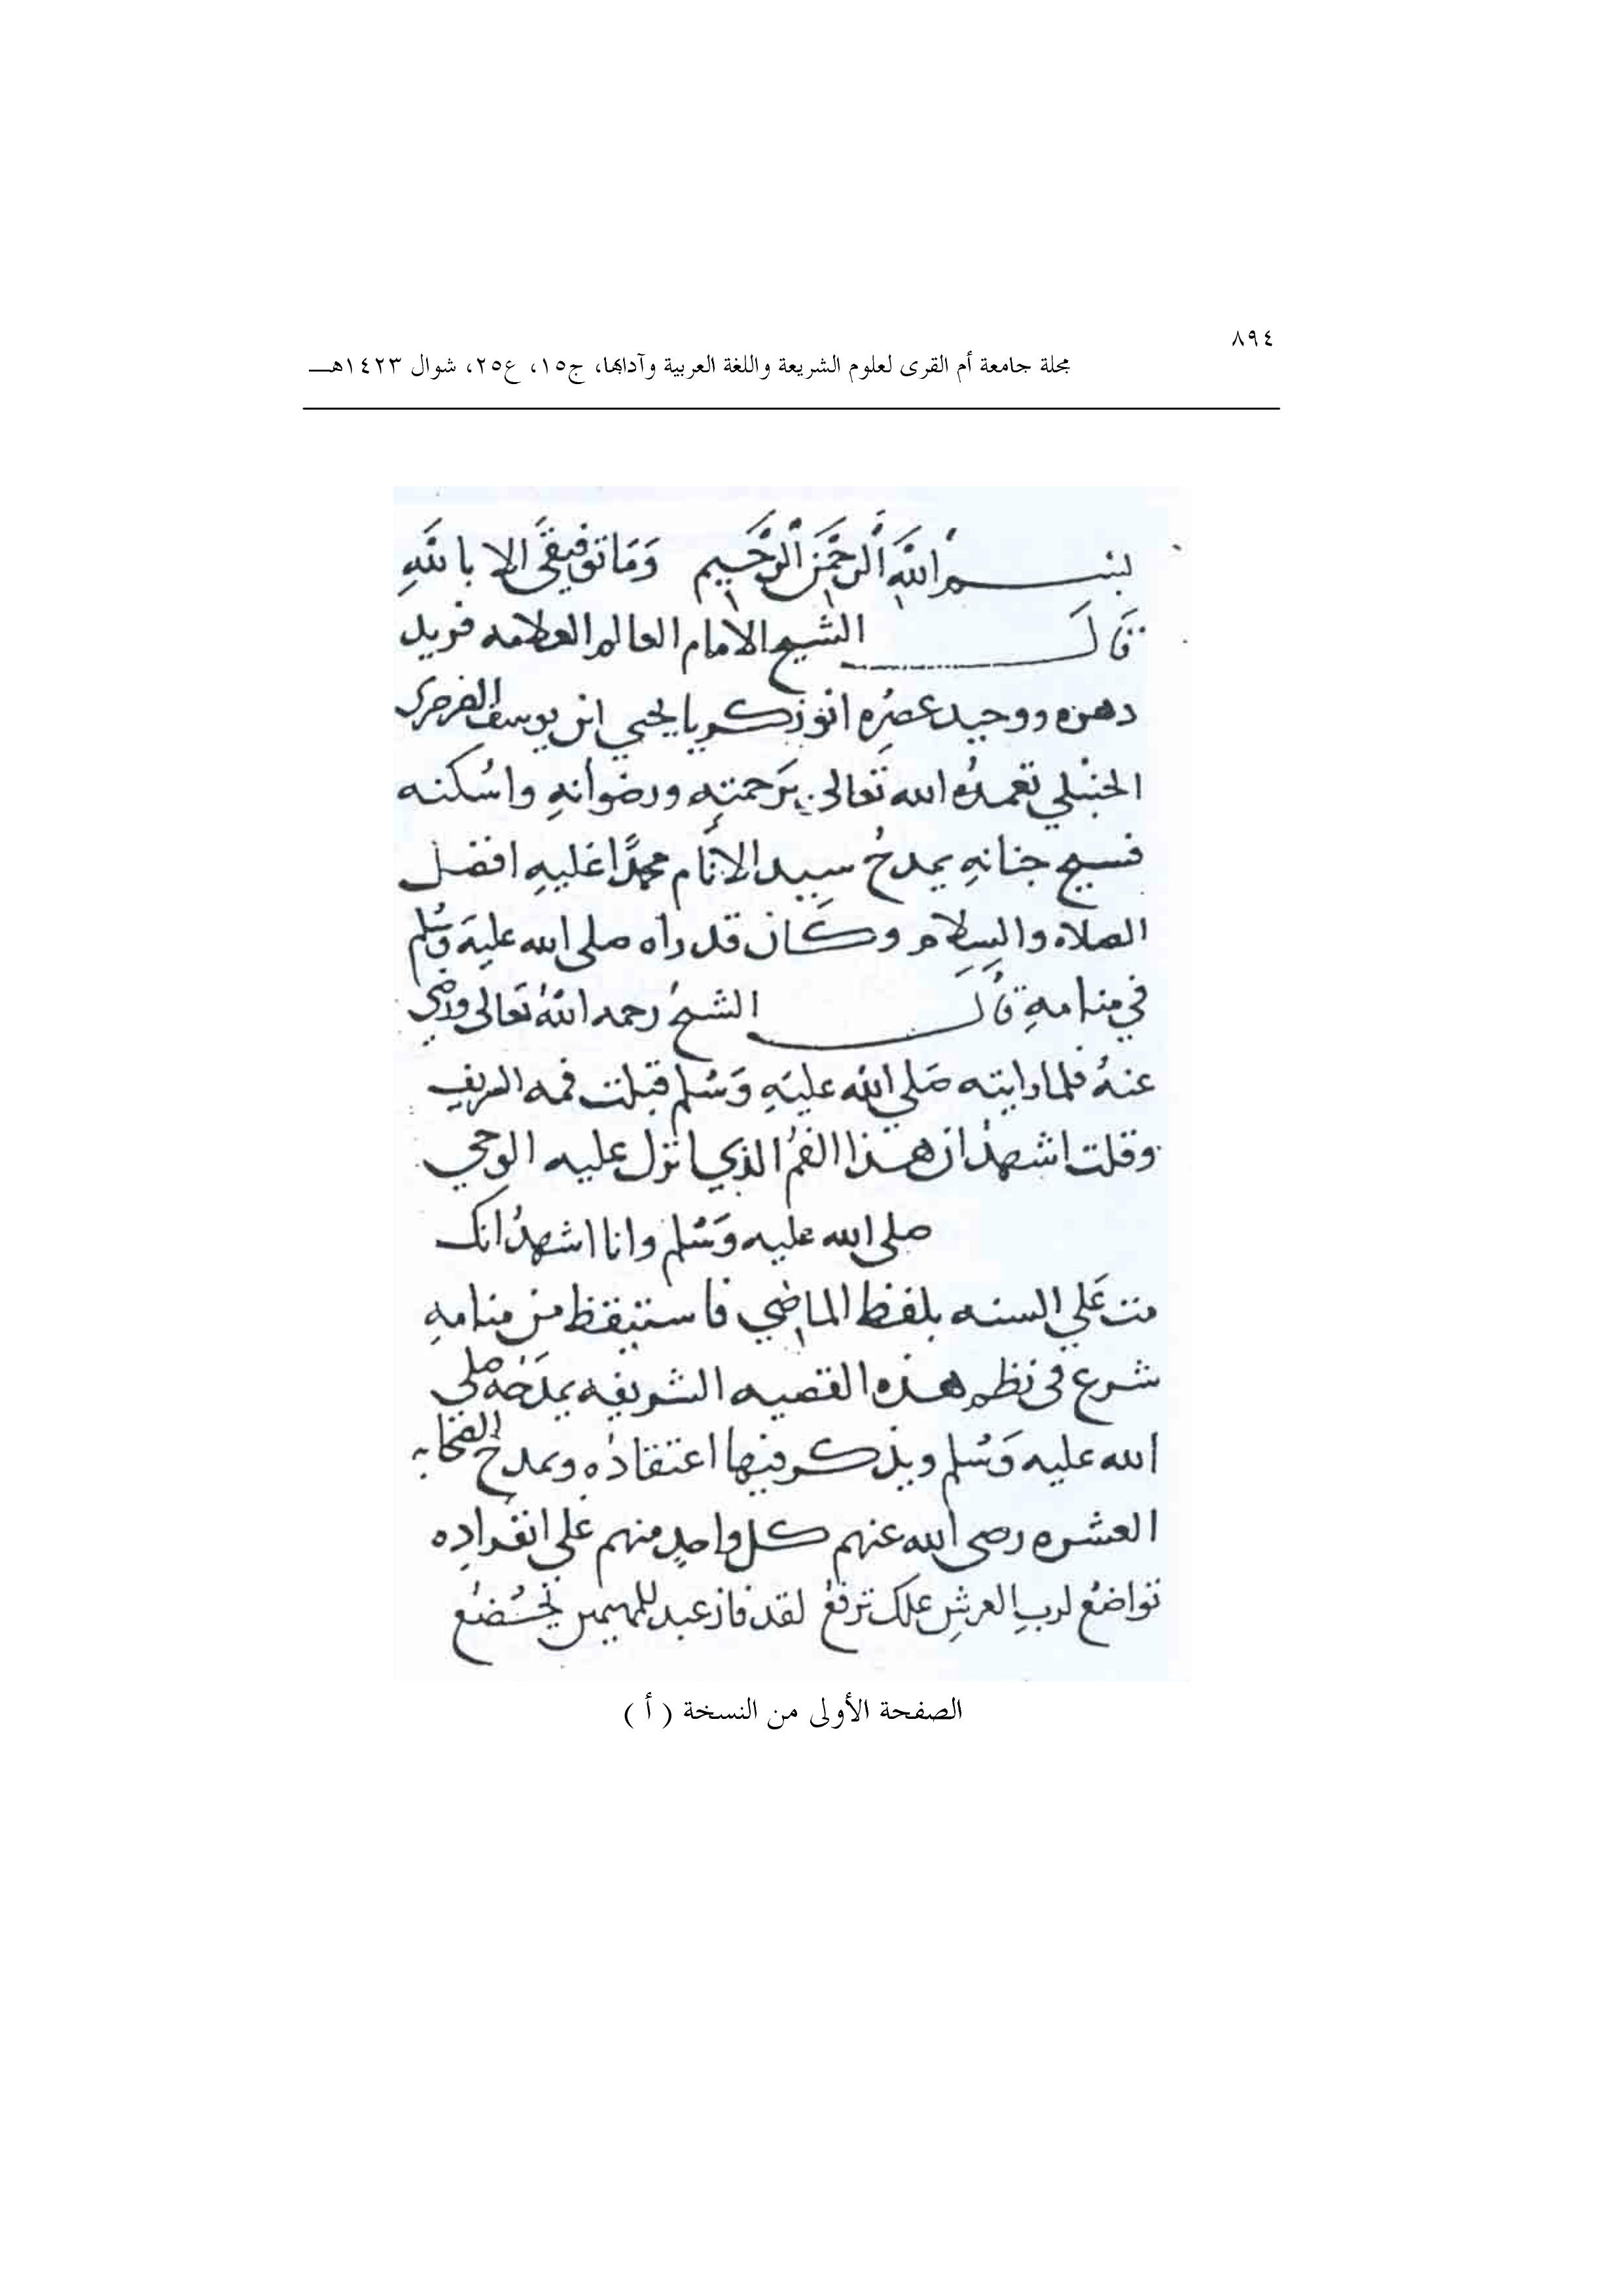 ٨٩٤
مجلة جامعة أم القرى لعلوم الشريعة واللغة العربية وآدابها، ج١٥، ع٢٥، شوال ١٤٢٣هــ
بسم الله الرحمن الرحيم وما توفيقي الا بالله
قال الشيخ الامام العالم العلامه فريد
دهره ووحيد عصره ابو زكريا يحيى ابن يوسف الصرصري
الحنبلي تغمده الله تعالى برحمته ورضوانه واسكنه
فسيح جنانه يمدح سيد الانام محمدا عليه افضل
الصلاه والسلام وكان قد راه صلى الله عليه وسلم
في منامه قال الشيخ رحمه الله تعالى ورضي
عنه فلما رايته صلي الله عليه وسلم قبلت فمه الشريف
وقلت اشهد ان هذا الفم الذي انزل عليه الوحي
صلى الله عليه وسلم وانا اشهد انك
مت علي السنه بلفظ الماضي فاستيقظ من منامه
شرع في نظم هذه القصيه الشريفه يمدحه صلى
الله عليه وسلم ويذكر فيها اعتقاده ويمدح الصحابه
العشره رضى الله عنهم كل واحد منهم على انفراده
تواضع لرب العرش علك ترفع لقد فاز عبد للمهيمن يخضع
الصفحة الأولى من النسخة ( أ )